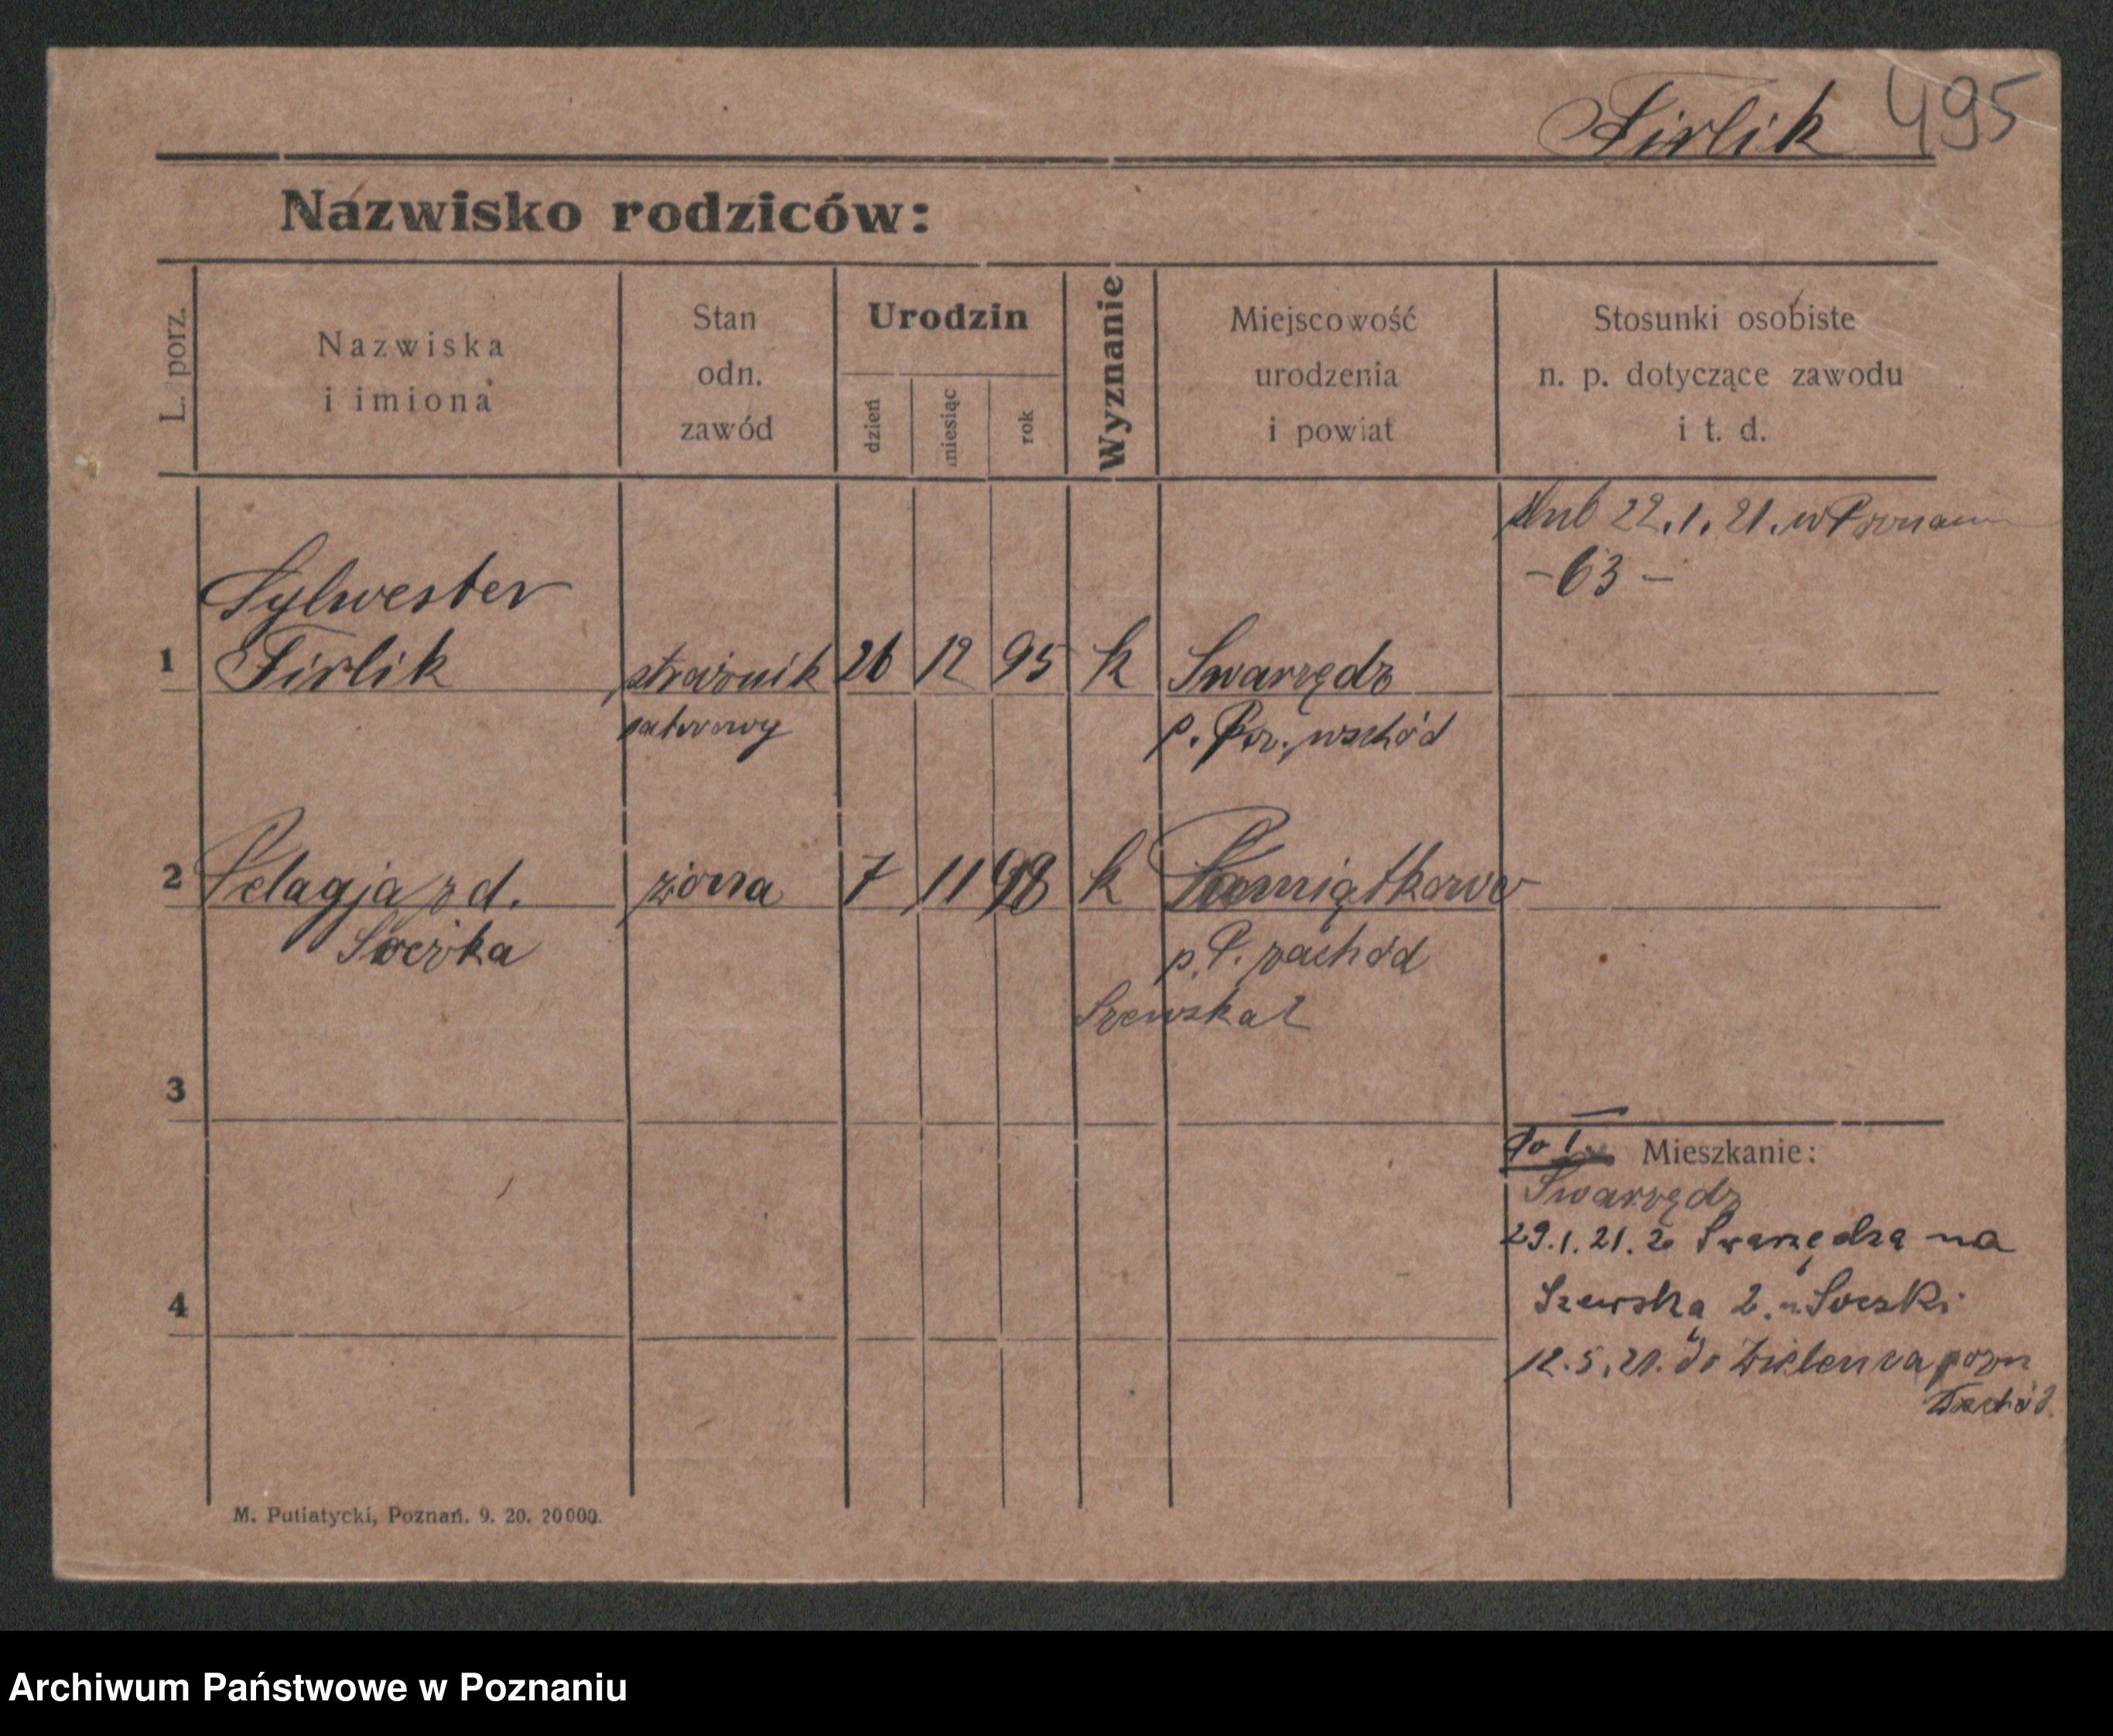 Firlik 495
Nazwisko rodziców:
L. porz.
Nazwiska
i imiona
Stan
odn.
zawód
Urodzin
dzień
miesiąc
rok
Wyznanie
Miejscowość
urodzenia
i powiat
Stosunki osobiste
n. p. dotyczące zawodu
i t. d.
ślub 22.1.21. w Poznaniu
- 63 -
Sylwester
1 Firlik strażnik 26 12 95 k Swarzędz
p. Poz. wschód
2 Pelagja z d. żona 7 11 98 k Pamiątkowo
Soczka
p. P. zachód
Szewska 2
3
do 1. Mieszkanie:
Swarzędz
29.1.21. z Swarzędza na
Szewską 2. u Soczki
4
12.5.21. do Zielenca pozn
Wschód.
M. Putiatycki, Poznań. 9. 20. 20000.
Archiwum Państwowe w Poznaniu